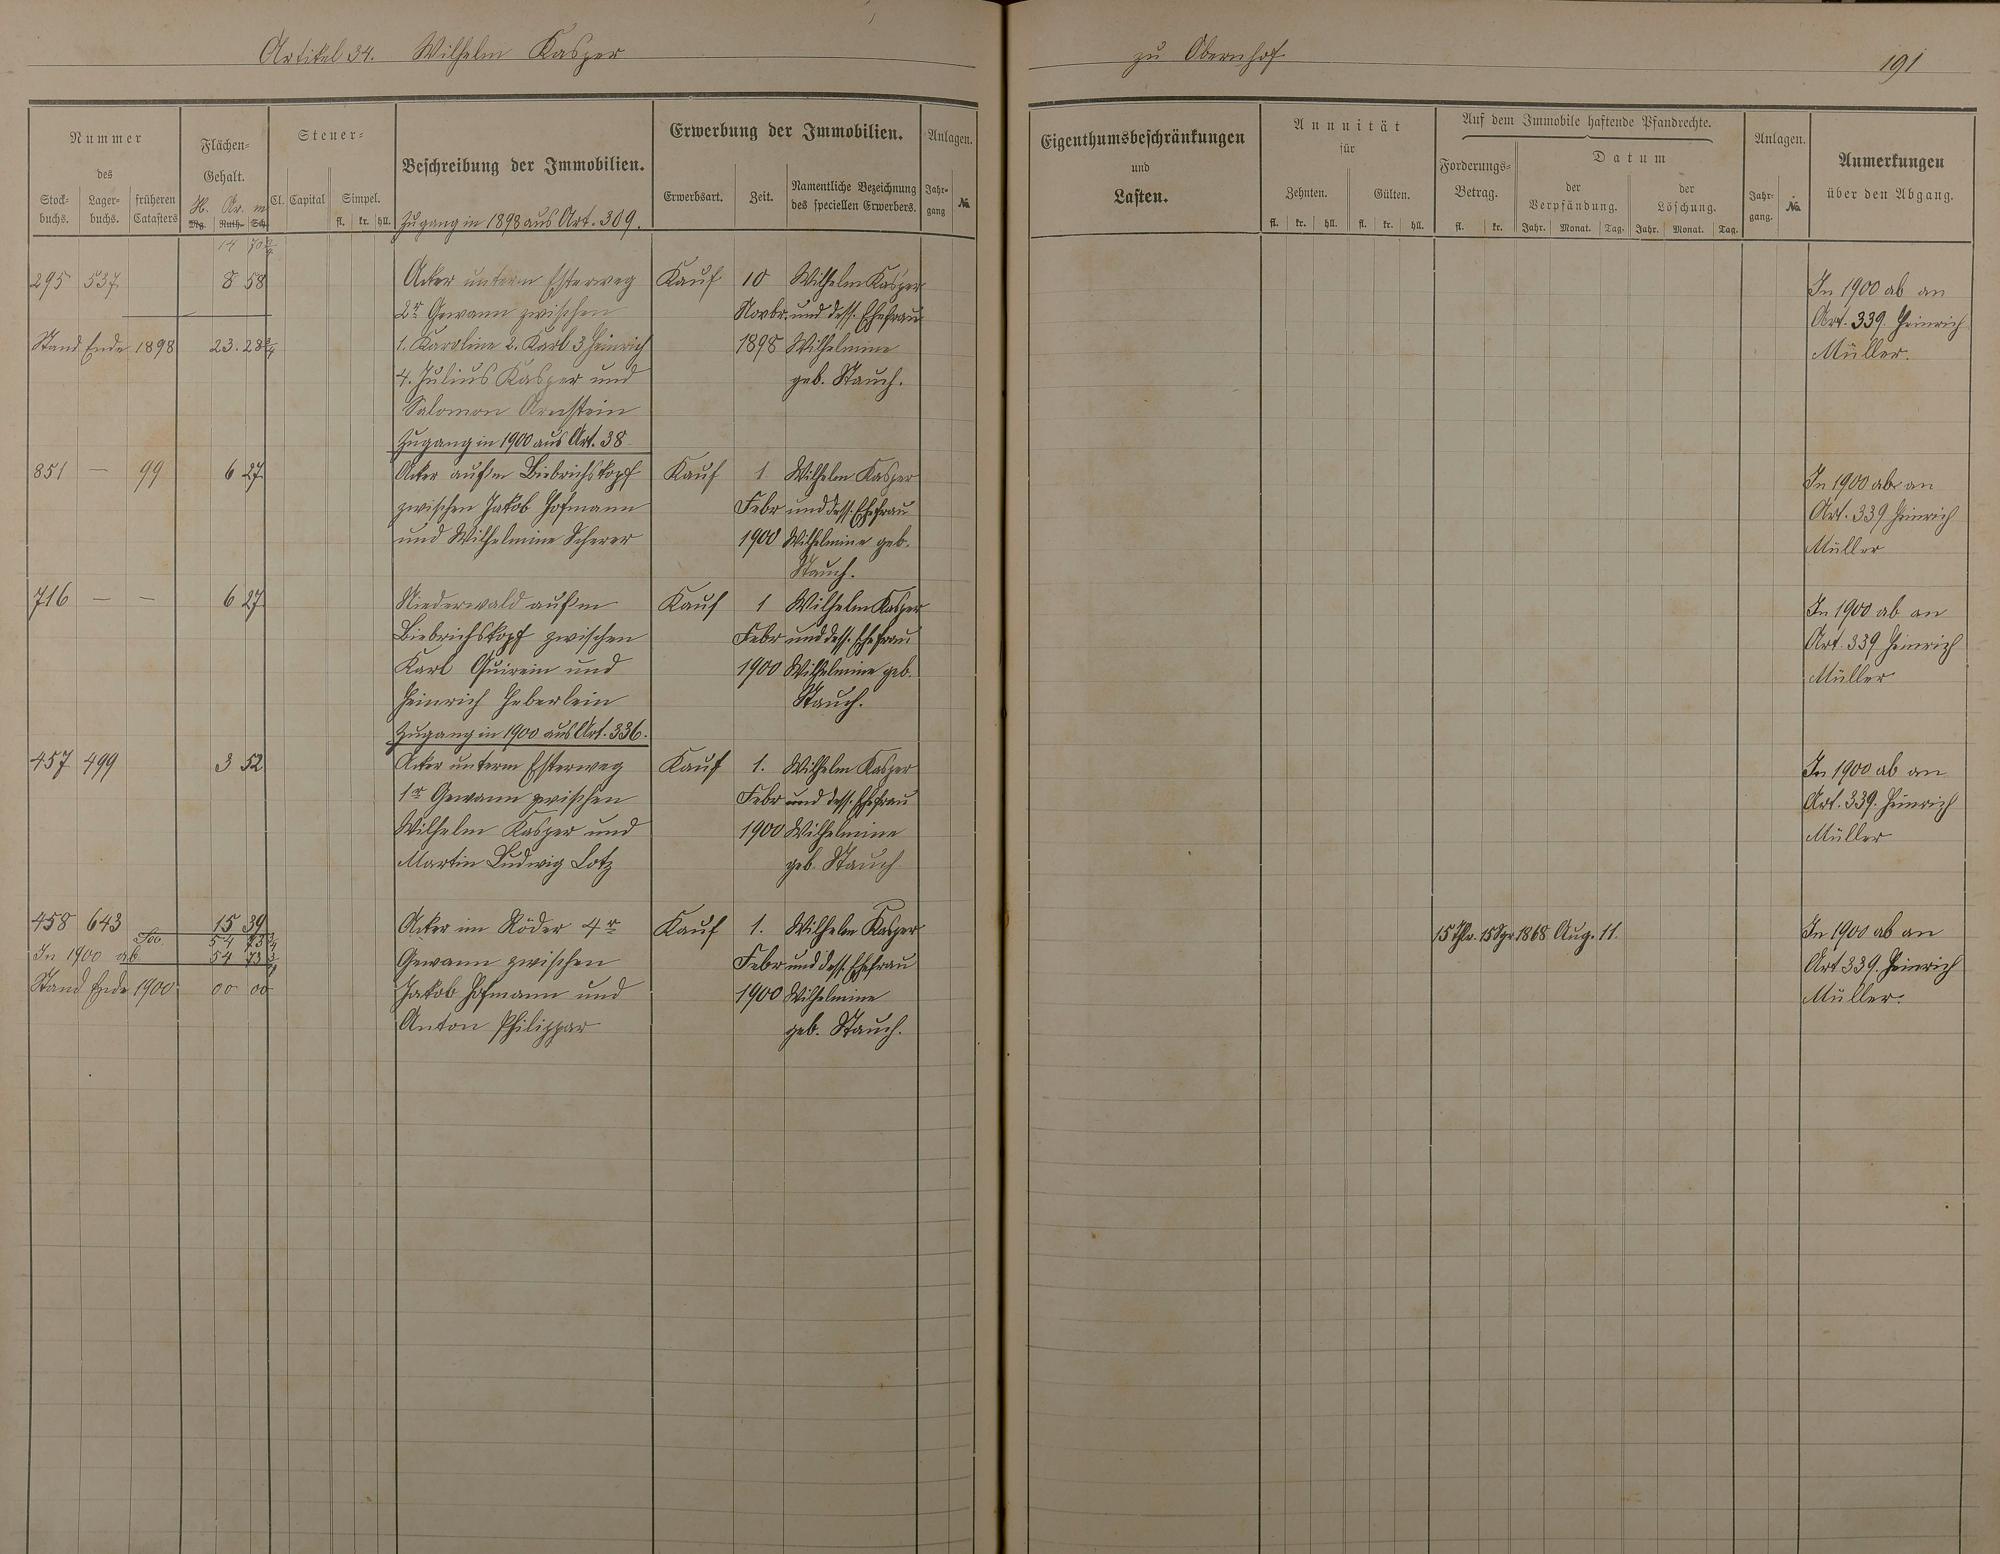 Artikel 34. Wilhelm Kasper
zu Obernhof
191
Nummer
des
Stock-
buchs.
Lager-
buchs.
früheren
Catasters
Flächen-
Gehalt.
H. Ar. m
Mg. Ruth. Sch.
Steuer-
Cl. Capital Simpel.
fl. kr. hll.
Beschreibung der Immobilien.
Zugang in 1898 aus Art. 309.
Erwerbung der Immobilien.
Erwerbsart. Zeit.
Namentliche Bezeichnung
des speciellen Erwerbers.
Anlagen.
Jahr-
gang
№
Eigenthumsbeschränkungen
und
Lasten.
Annuität
für
Zehnten. Gülten.
fl. kr. hll. fl. kr. hll.
Auf dem Immobile haftende Pfandrechte.
Forderungs-
Betrag.
fl. kr.
Datum
der
Verpfändung.
Jahr. Monat. Tag.
der
Löschung.
Jahr. Monat. Tag.
Anlagen.
Jahr-
gang.
№
Anmerkungen
über den Abgang.
14 70
295 537 8 58 Acker unterm Esterweg Kauf 10 Wilhelm Kasper In 1900 ab an
2r Gewann zwischen Novbr. und dess. Ehefrau Art. 339 Heinrich
Stand Ende 1898 23. 28 3/4 1. Karoline 2. Karl 3 Heinrich 1898 Wilhelmine Müller.
4. Julius Kasper und geb. Stauch.
Salomon Arnstein
Zugang in 1900 aus Art. 38
851 — 99 6 27 Acker auf'm Biebrichskopf Kauf 1 Wilhelm Kasper In 1900 ab an
zwischen Jakob Hofmann Febr und dess. Ehefrau Art. 339 Heinrich
und Wilhelmine Scherer 1900 Wilhelmine geb. Müller
Stauch.
716 — — 6 27 Niederwald auf'm Kauf 1 Wilhelm Kasper In 1900 ab an
Biebrichskopf zwischen Febr und dess. Ehefrau Art. 339 Heinrich
Karl Quirein und 1900 Wilhelmine geb. Müller
Heinrich Heberlein Stauch.
Zugang in 1900 aus Art. 336.
457 499 3 52 Acker unterm Esterweg Kauf 1. Wilhelm Kasper In 1900 ab an
1r Gewann zwischen Febr und dess. Ehefrau Art. 339. Heinrich
Wilhelm Kasper und 1900 Wilhelmine Müller
Martin Ludwig Lotz geb. Stauch
458 643 15 39 Acker im Röder 4r Kauf 1. Wilhelm Kasper 15 Thlr. 15 Sgr 1868 Aug. 11. In 1900 ab an
54 73 3/4
In 1900 ab 54 73 3/4 Gewann zwischen Febr und dess. Ehefrau Art 339. Heinrich
Stand Ende 1900 00 00 Jakob Hofmann und 1900 Wilhelmine Müller.
Anton Philippar geb. Stauch.